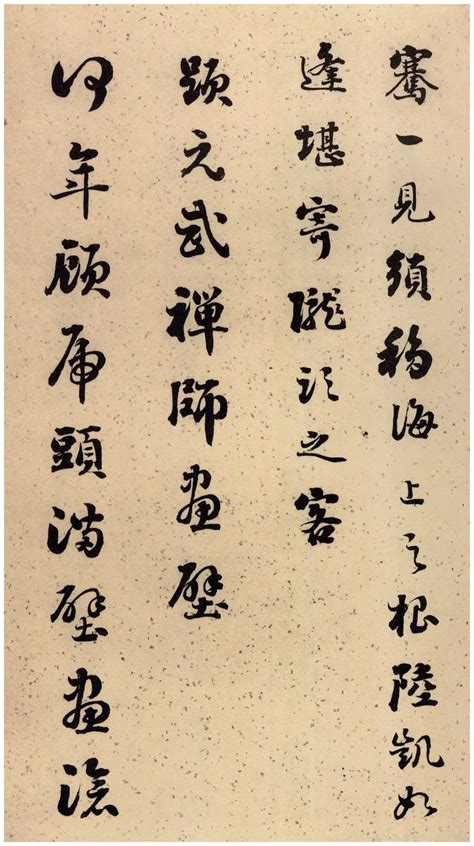 騫一見須移海上之根陸凱如
逢堪寄隴頭之客
題元武禪師畫壁
何年顧虎頭滿壁畫滄